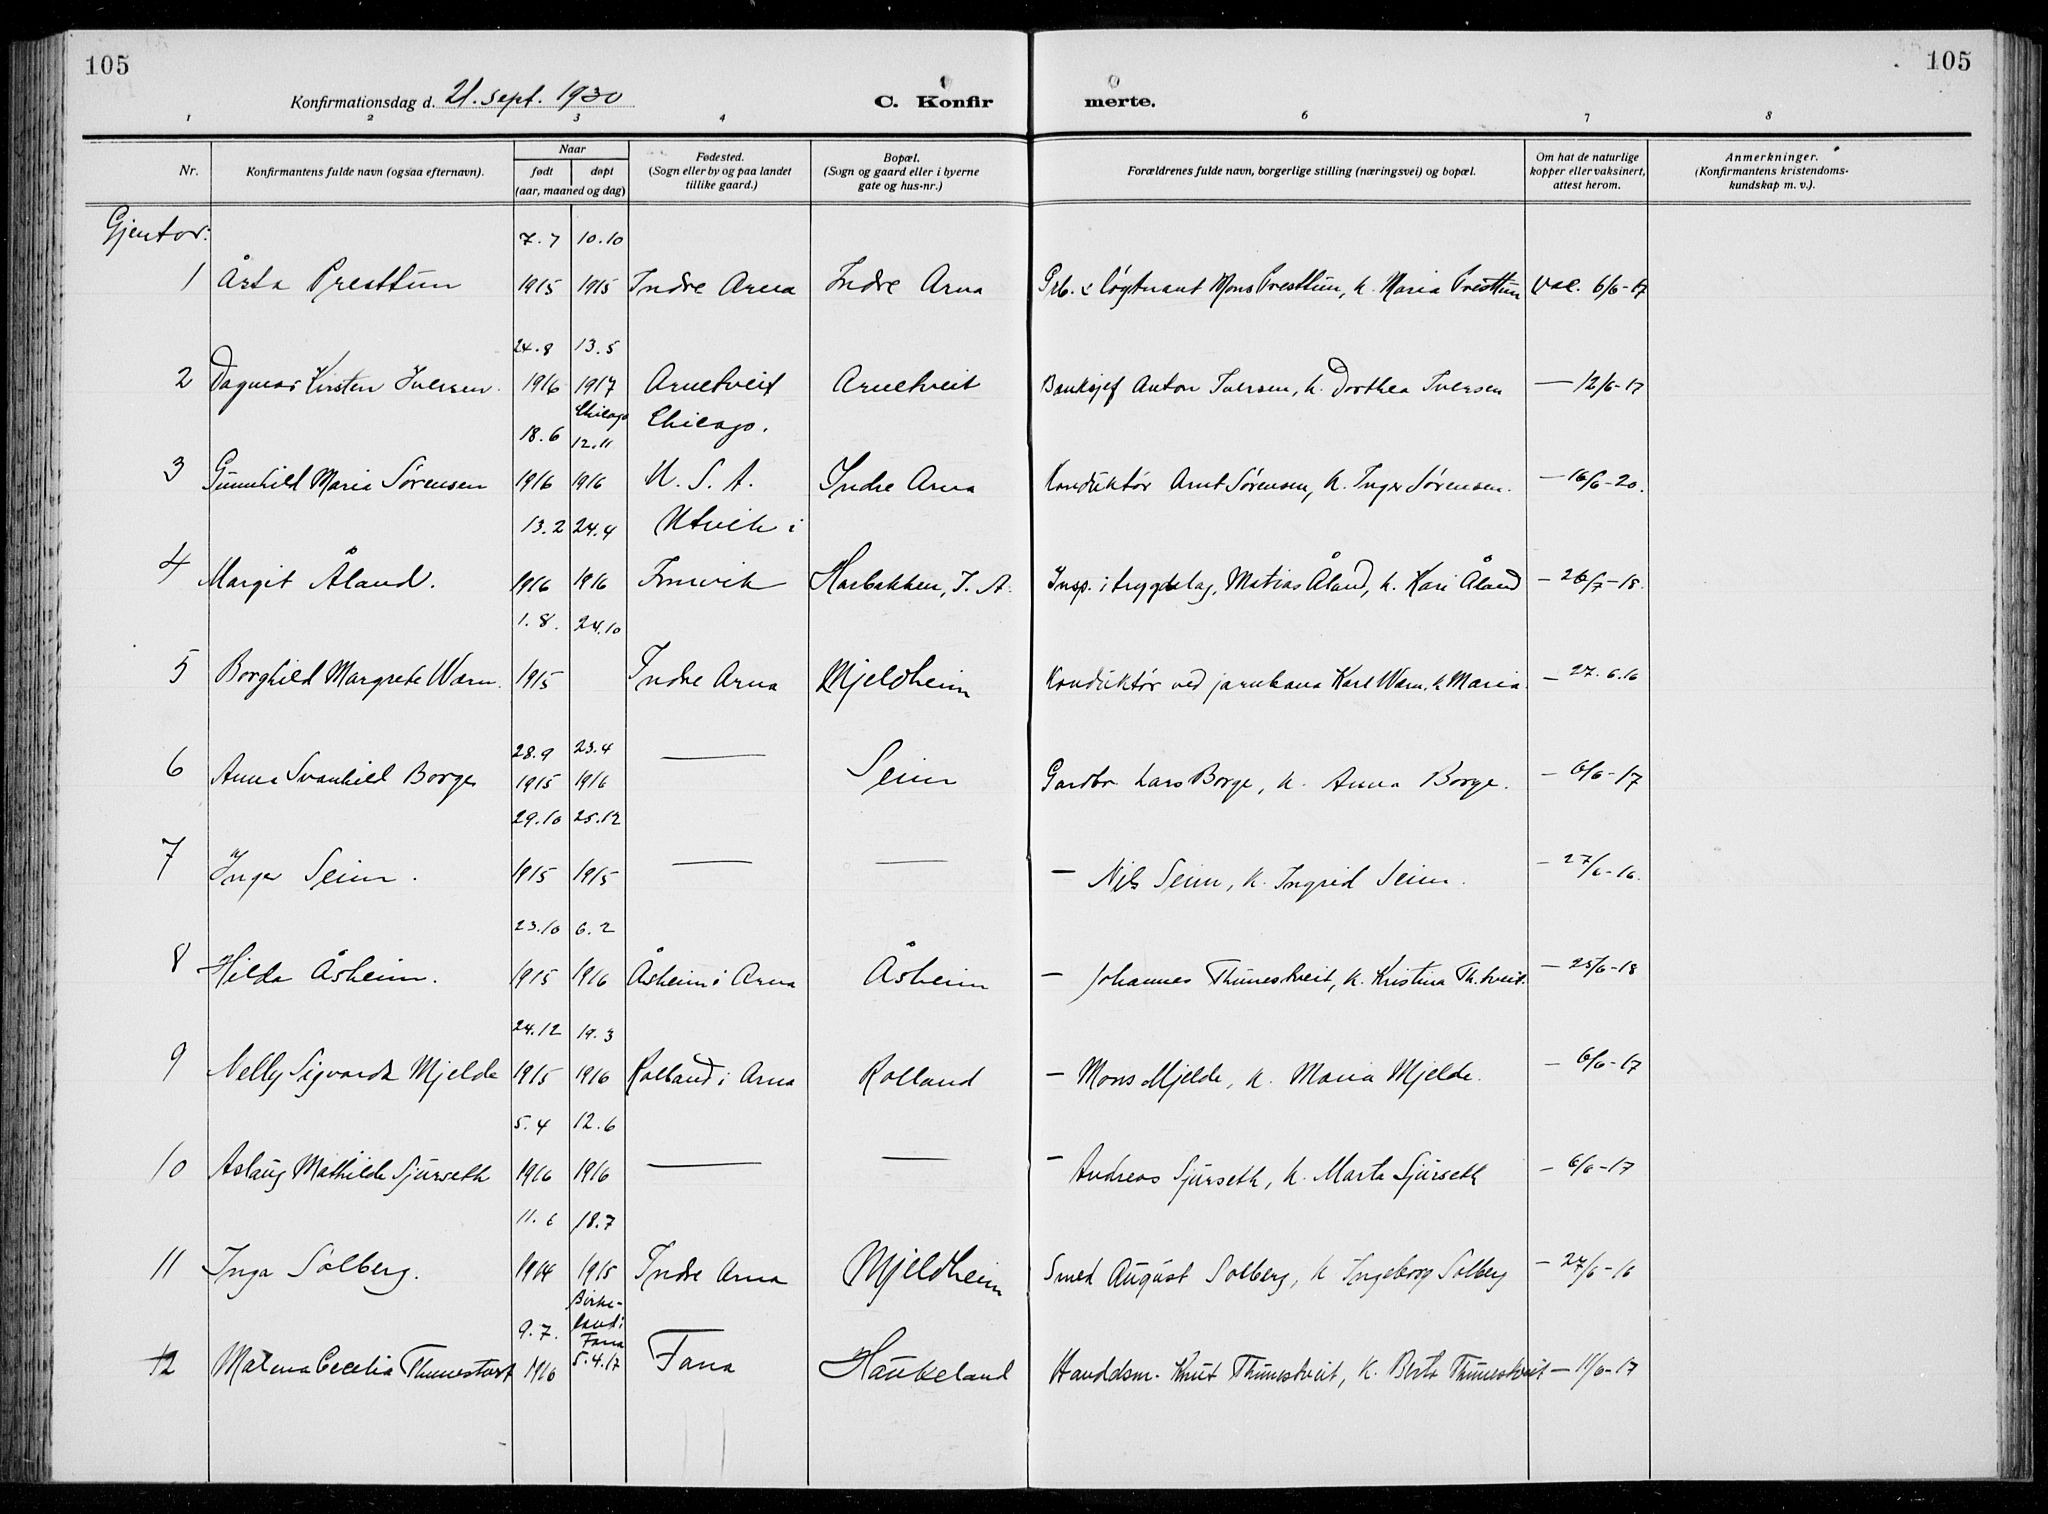 105
105
Konfirmationsdag d. 21. sept. 1930
C. Konfirmerte.
1 2 3 4 6 7 8
Nr.
Konfirmantens fulde navn (ogsaa efternavn).
Naar
født døpt
(aar, maaned og dag)
Fødested.
(Sogn eller by og paa landet
tillike gaard.)
Bopæl.
(Sogn og gaard eller i byerne
gate og hus-nr.)
Forældrenes fulde navn, borgerlige stilling (næringsvei) og bopæl.
Om hat de naturlige
kopper eller vaksinert,
attest herom.
Anmerkninger.
(Konfirmantens kristendoms-
kundskap m. v.).
Gjentor:
7.7 10.10
1 Åsta Presttun 1915 1915 Indre Arna Indre Arna Grb. & løytnant Mons Presttun, h. Maria Presttun Vac. 6/6-17
24.8 13.5
2 Dagmar Kirsten Iversen. 1916 1917 Arnetveit Arnetveit Banksjef Anton Iversen, h. Dorthea Iversen — 12/6-17
Chicago Chicago.
18.6 12.11
3 Gunnhild Maria Sørensen 1916 1916 U. S. A. Indre Arna Konduktør Arnt Sørensen, h. Inger Sørensen. — 16/6-20.
13.2 24.4 Utvik i
4 Margit Åland. 1916 1916 Innvik Harbakken, I. A. Insp. i trygdelag, Matias Åland, h. Kari Åland — 26/7-18.
1.8. 24.10
5 Borghild Margrete Warn. 1915 Indre Arna Mjeldheim Konduktør ved jarnbana Karl Warn, h Maria. — 27.6.16
28.9 23.4
6 Anna Svanhild Borge 1915 1916 — Seim Gardbr. Lars Borge, h. Anna Borge. — 6/6-17
29.10 25.12
7 Inger Seim. 1915 1915 — — — Nils Seim, h. Ingrid Seim. — 27/6-16.
23.10 6.2
8 Hilda Åsheim. 1915 1916 Åsheim i Arna Åsheim — Johannes Thunestveit, h. Kristina Th.tveit. — 25/6-18
24.12 19.3
9 Nelly Sigvarda Mjelde 1915 1916 Rolland i Arna Rolland — Mons Mjelde, h. Maria Mjelde. — 6/6-17
5.4 12.6
10 Aslaug Mathilde Sjurseth 1916 1916 — — — Andreas Sjurseth, h. Marta Sjurseth — 6/6-17
11.6 18.7
11 Inga Solberg. 1914 1915 Indre Arna Mjeldheim Smed August Solberg, h Ingeborg Solberg — 27/6-16
Birke-
land i
9.7. Fana
12 Malena Cecelia Thunestvet 1916 5.4.17 Fana Haukeland Handdsm. Knut Thunestveit, h. Berta Thunestveit — 11/6-17